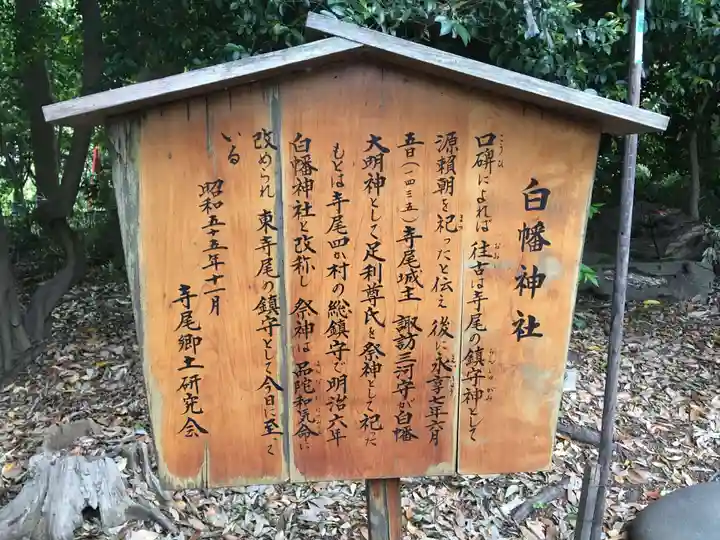 白幡神社
口碑によれば 往古は寺尾の鎮守神として
源頼朝を祀ったと伝え 後に永享七年六月
五日(一四三五)寺尾城主 諏訪三河守が白幡
大明神として足利尊氏を祭神として祀った
もとは寺尾四か村の総鎮守で明治六年
白幡神社と改称し 祭神は 品陀和気命に
改められ 東寺尾の鎮守として今日に至って
いる
昭和五十五年十一月
寺尾郷土研究会